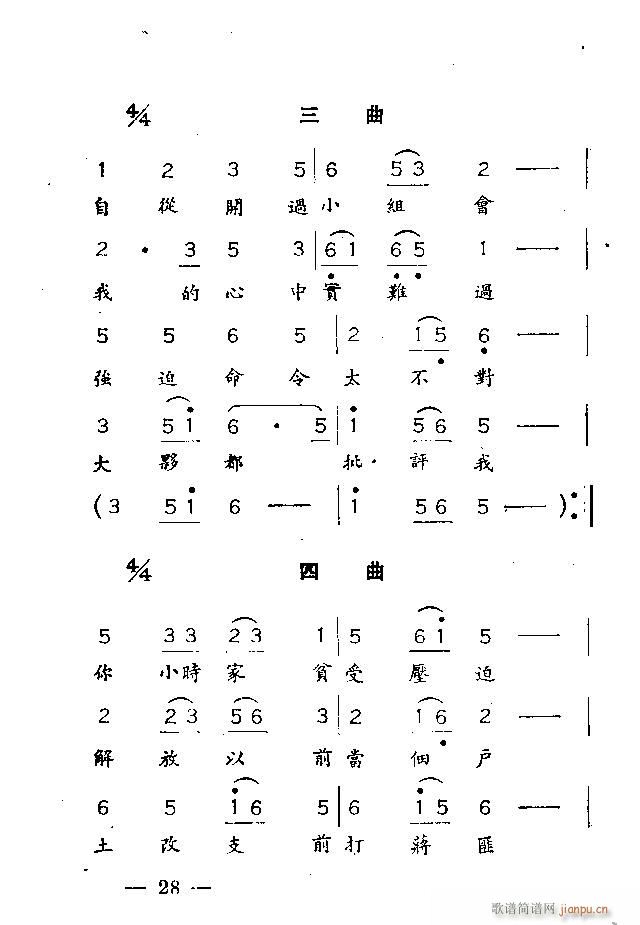 4/4 三 曲
1 2 3 5 | 6 5 3 2 — |
自 從 開 過 小 組 會
2 · 3 5 3 | 6 1 6 5 1 — |
我 的 心 中 實 難 過
5 5 6 5 | 2 1 5 6 — |
強 迫 命 令 太 不 對
3 5 1 6 · 5 | 1 5 6 5 — |
大 夥 都 批 評 我
( 3 5 1 6 — | 1 5 6 5 — ) :|
4/4 四 曲
5 3 3 2 3 1 | 5 6 1 5 — |
你 小 時 家 貧 受 壓 迫
2 2 3 5 6 3 | 2 1 6 2 — |
解 放 以 前 當 佃 戶
6 5 1 6 5 | 6 1 5 6 — |
土 改 支 前 打 蔣 匪
— 28 —
歌谱简谱网
jianpu.cn